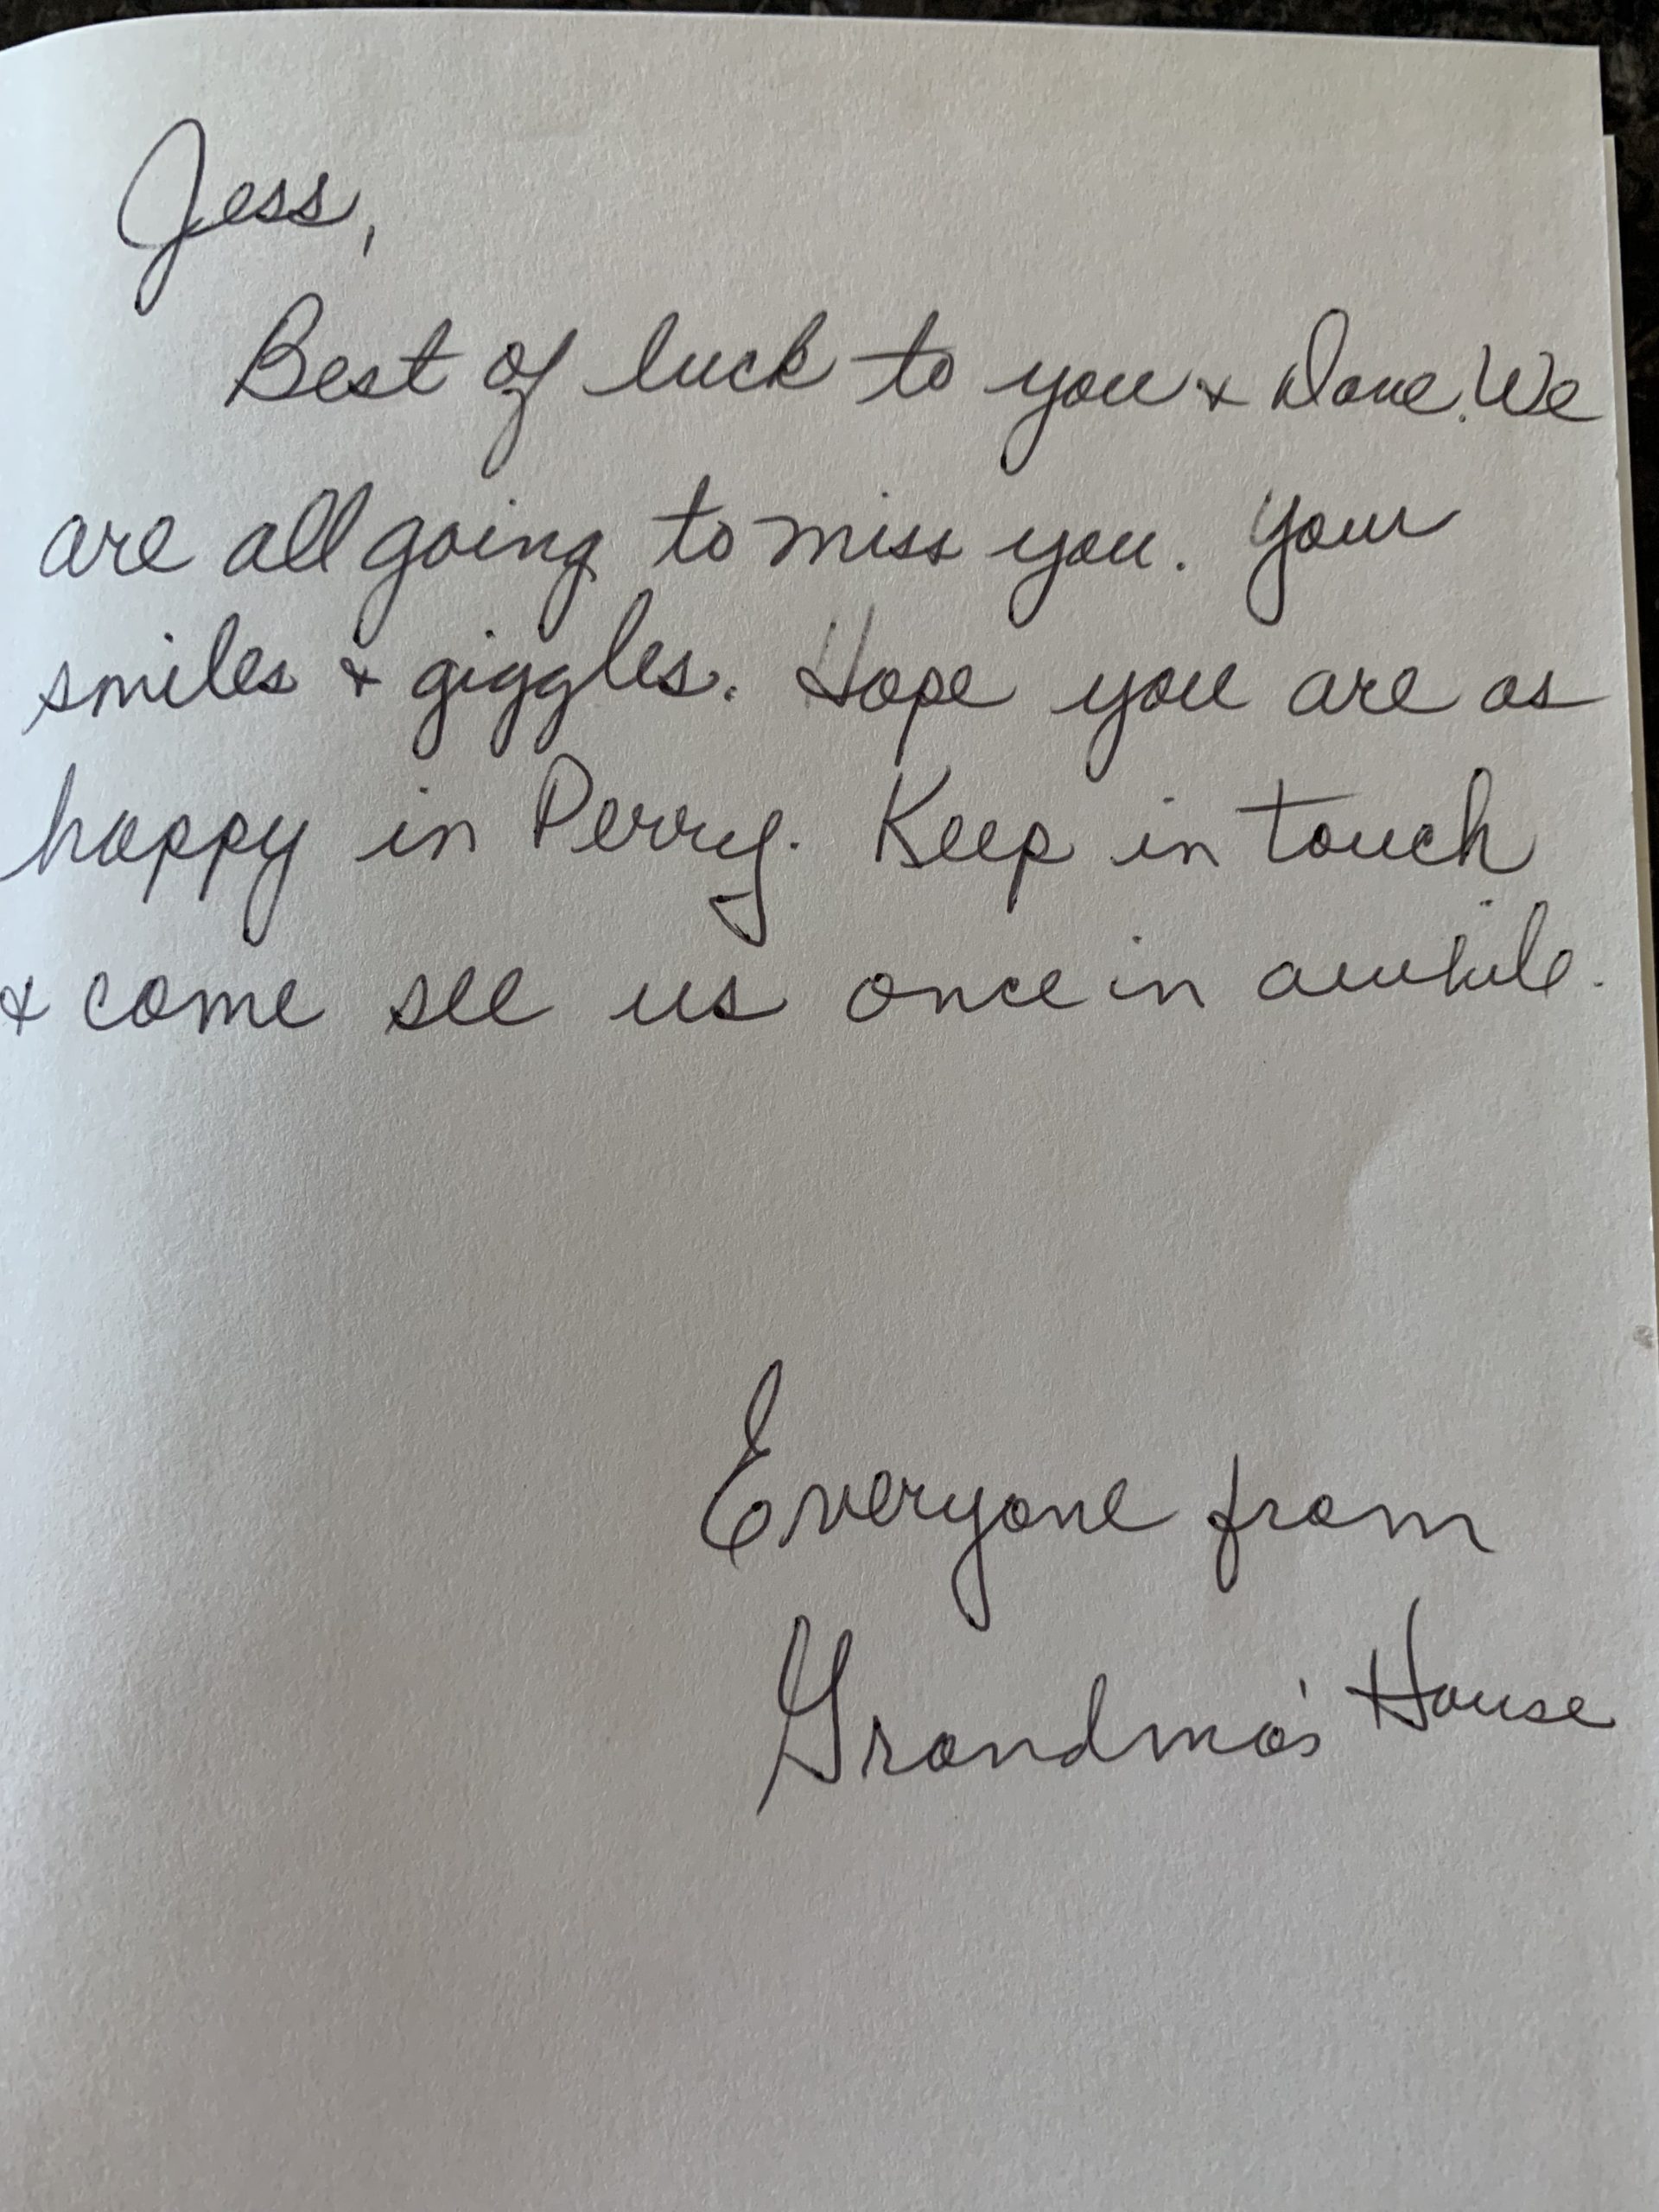 Jess,
Best of luck to you & Dave. We
are all going to miss you. Your
smiles & giggles. Hope you are as
happy in Perry. Keep in touch
& come see us once in awhile.
Everyone from
Grandma's House